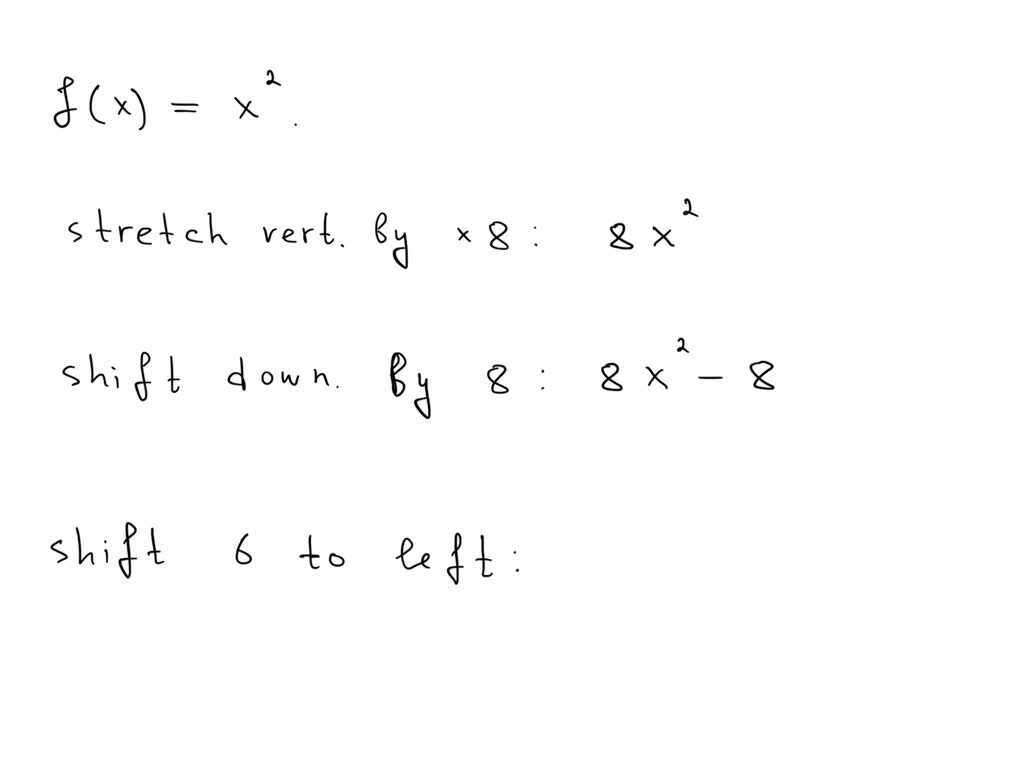 f(x) = x².
stretch vert. by × 8 : 8x²
shift down. By 8 : 8x² - 8
shift 6 to left :